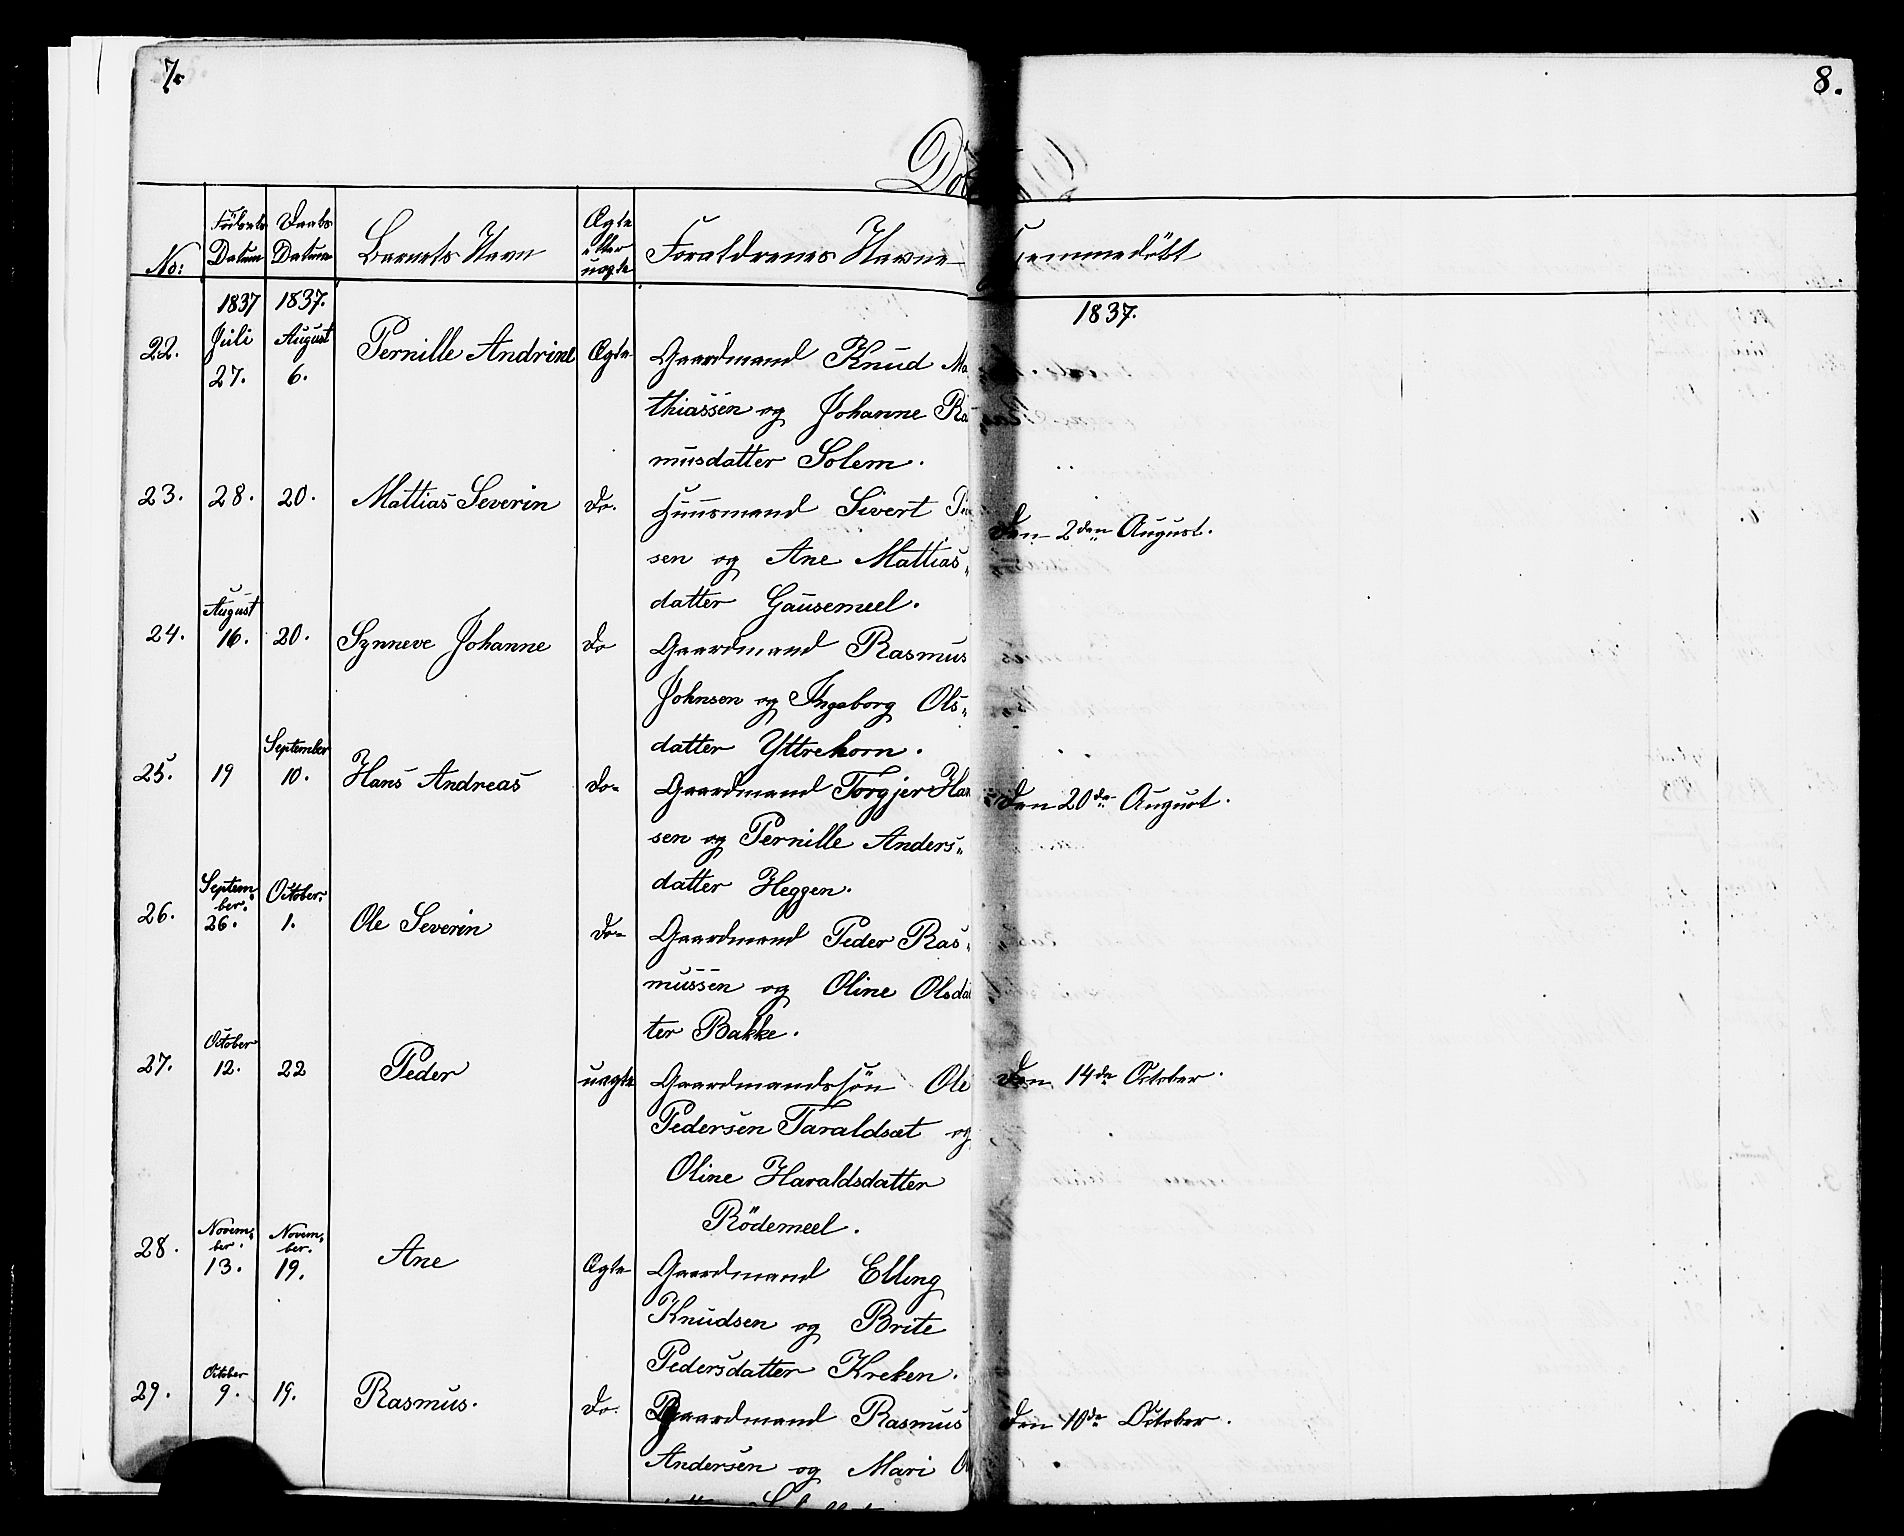 7.
8.
Dö
No:
Födsels Datum
Daabs Datum
Barnets Navn
Ægte
eller
uægte
Forældrenes Navne
Hjemmedöbt
1837
1837.
1837.
22.
Juli
27.
August
6.
Pernille Andrine
Ægte
Gaardmand Knud Ma
thiassen og Johanne Ras
musdatter Solem.
23.
28.
20.
Mattias Severin
do.
Huusmand Sivert
sen og Ane Mattias„
datter Gausemeel.
Den 2den August.
24.
August
16.
20.
Synneve Johanne
do
Gaardmand Rasmus
Johnsen og Ingeborg Ols„
datter Yttrehorn.
25.
19
September
10.
Hans Andreas
do-
Gaardmand Torgjer Han
sen og Pernille Anders„
datter Heggen.
Den 20de August.
26.
Septem„
ber.
26.
October.
1.
Ole Severin
do-
Gaardmand Peder Ras„
mussen og Oline Olsdat
ter Bakke.
27.
October
12.
22
Peder
uægte
Gaardmandssön Ole
Pedersen Taraldsæt og
Oline Haraldsdatter
Rödemeel.
Den 14de October.
28.
Novem„
ber.
13.
Novem„
ber.
19.
Ane
Ægte
Gaardmand Elling
Knudsen og Brite
Pedersdatter Kreken.
29.
October
9.
19.
Rasmus.
do.
Gaardmand Rasmus
Andersen og Mari
Den 10de October.